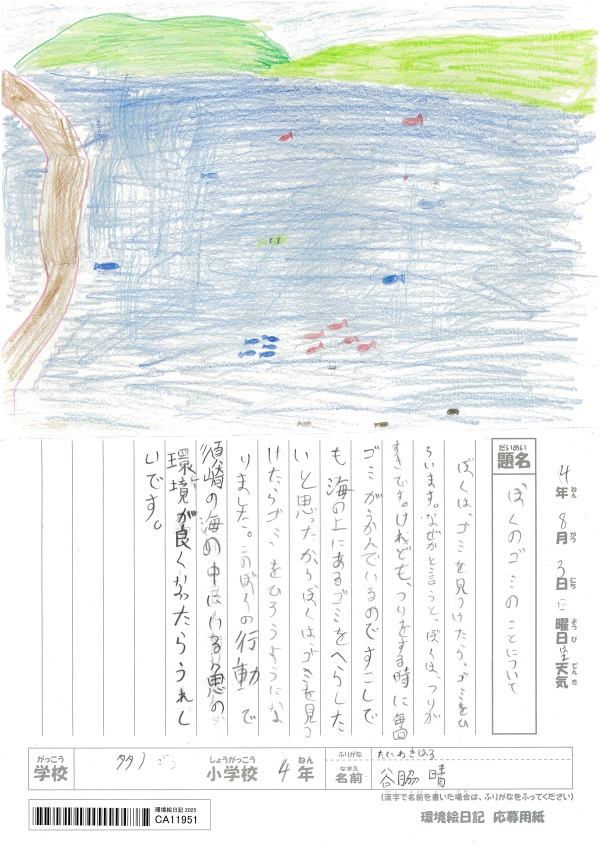 4年 8月 3日 日曜日 天気
題名 ぼくのゴミのことについて
ぼくは、ゴミを見つけたら、ゴミをひ
ろいます。なぜかと言うと、ぼくは、つりが
すきです。けれども、つりをする時に毎回
ゴミがうかんでいるのですこしで
も海の上にあるゴミをへらした
いと思ったからぼくは、ゴミを見つ
けたらゴミをひろうようにな
りました。このぼくの行動で
須崎の海の中にいる魚の
環境が良くなったらうれし
いです。
がっこう
学校
しょうがっこう
小学校 4年
ふりがな たにわきはる
なまえ
名前 谷脇 晴
(漢字で名前を書いた場合は、ふりがなをふってください)
環境絵日記 2025
CA11951
環境絵日記 応募用紙